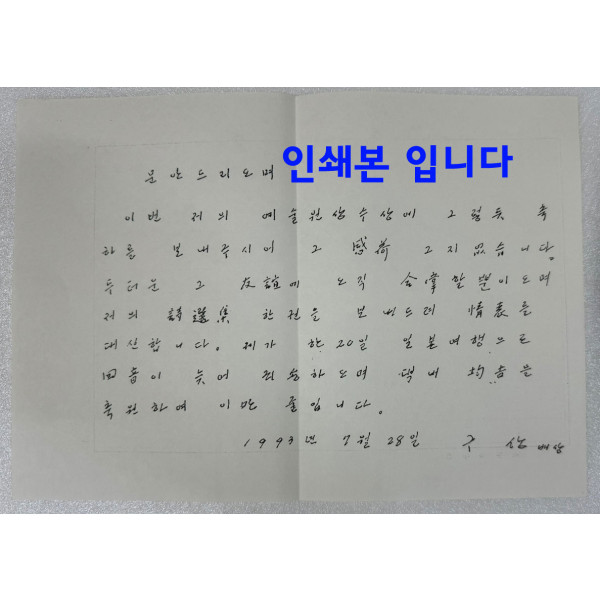 문안드리오며 인쇄본 입니다
이번 저의 예술원상수상에 그렇듯 축
하를 보내주시어 그 感荷 그지없습니다.
두터운 그 友誼에 오직 合掌할뿐이오며
저의 詩選集 한권을 보내드려 情表를
대신합니다. 제가 한 20일 일본여행으로
回音이 늦어 죄송하오며 댁내 均吉을
축원하며 이만 줄입니다.
1993年 7월 28일 구 상 배상